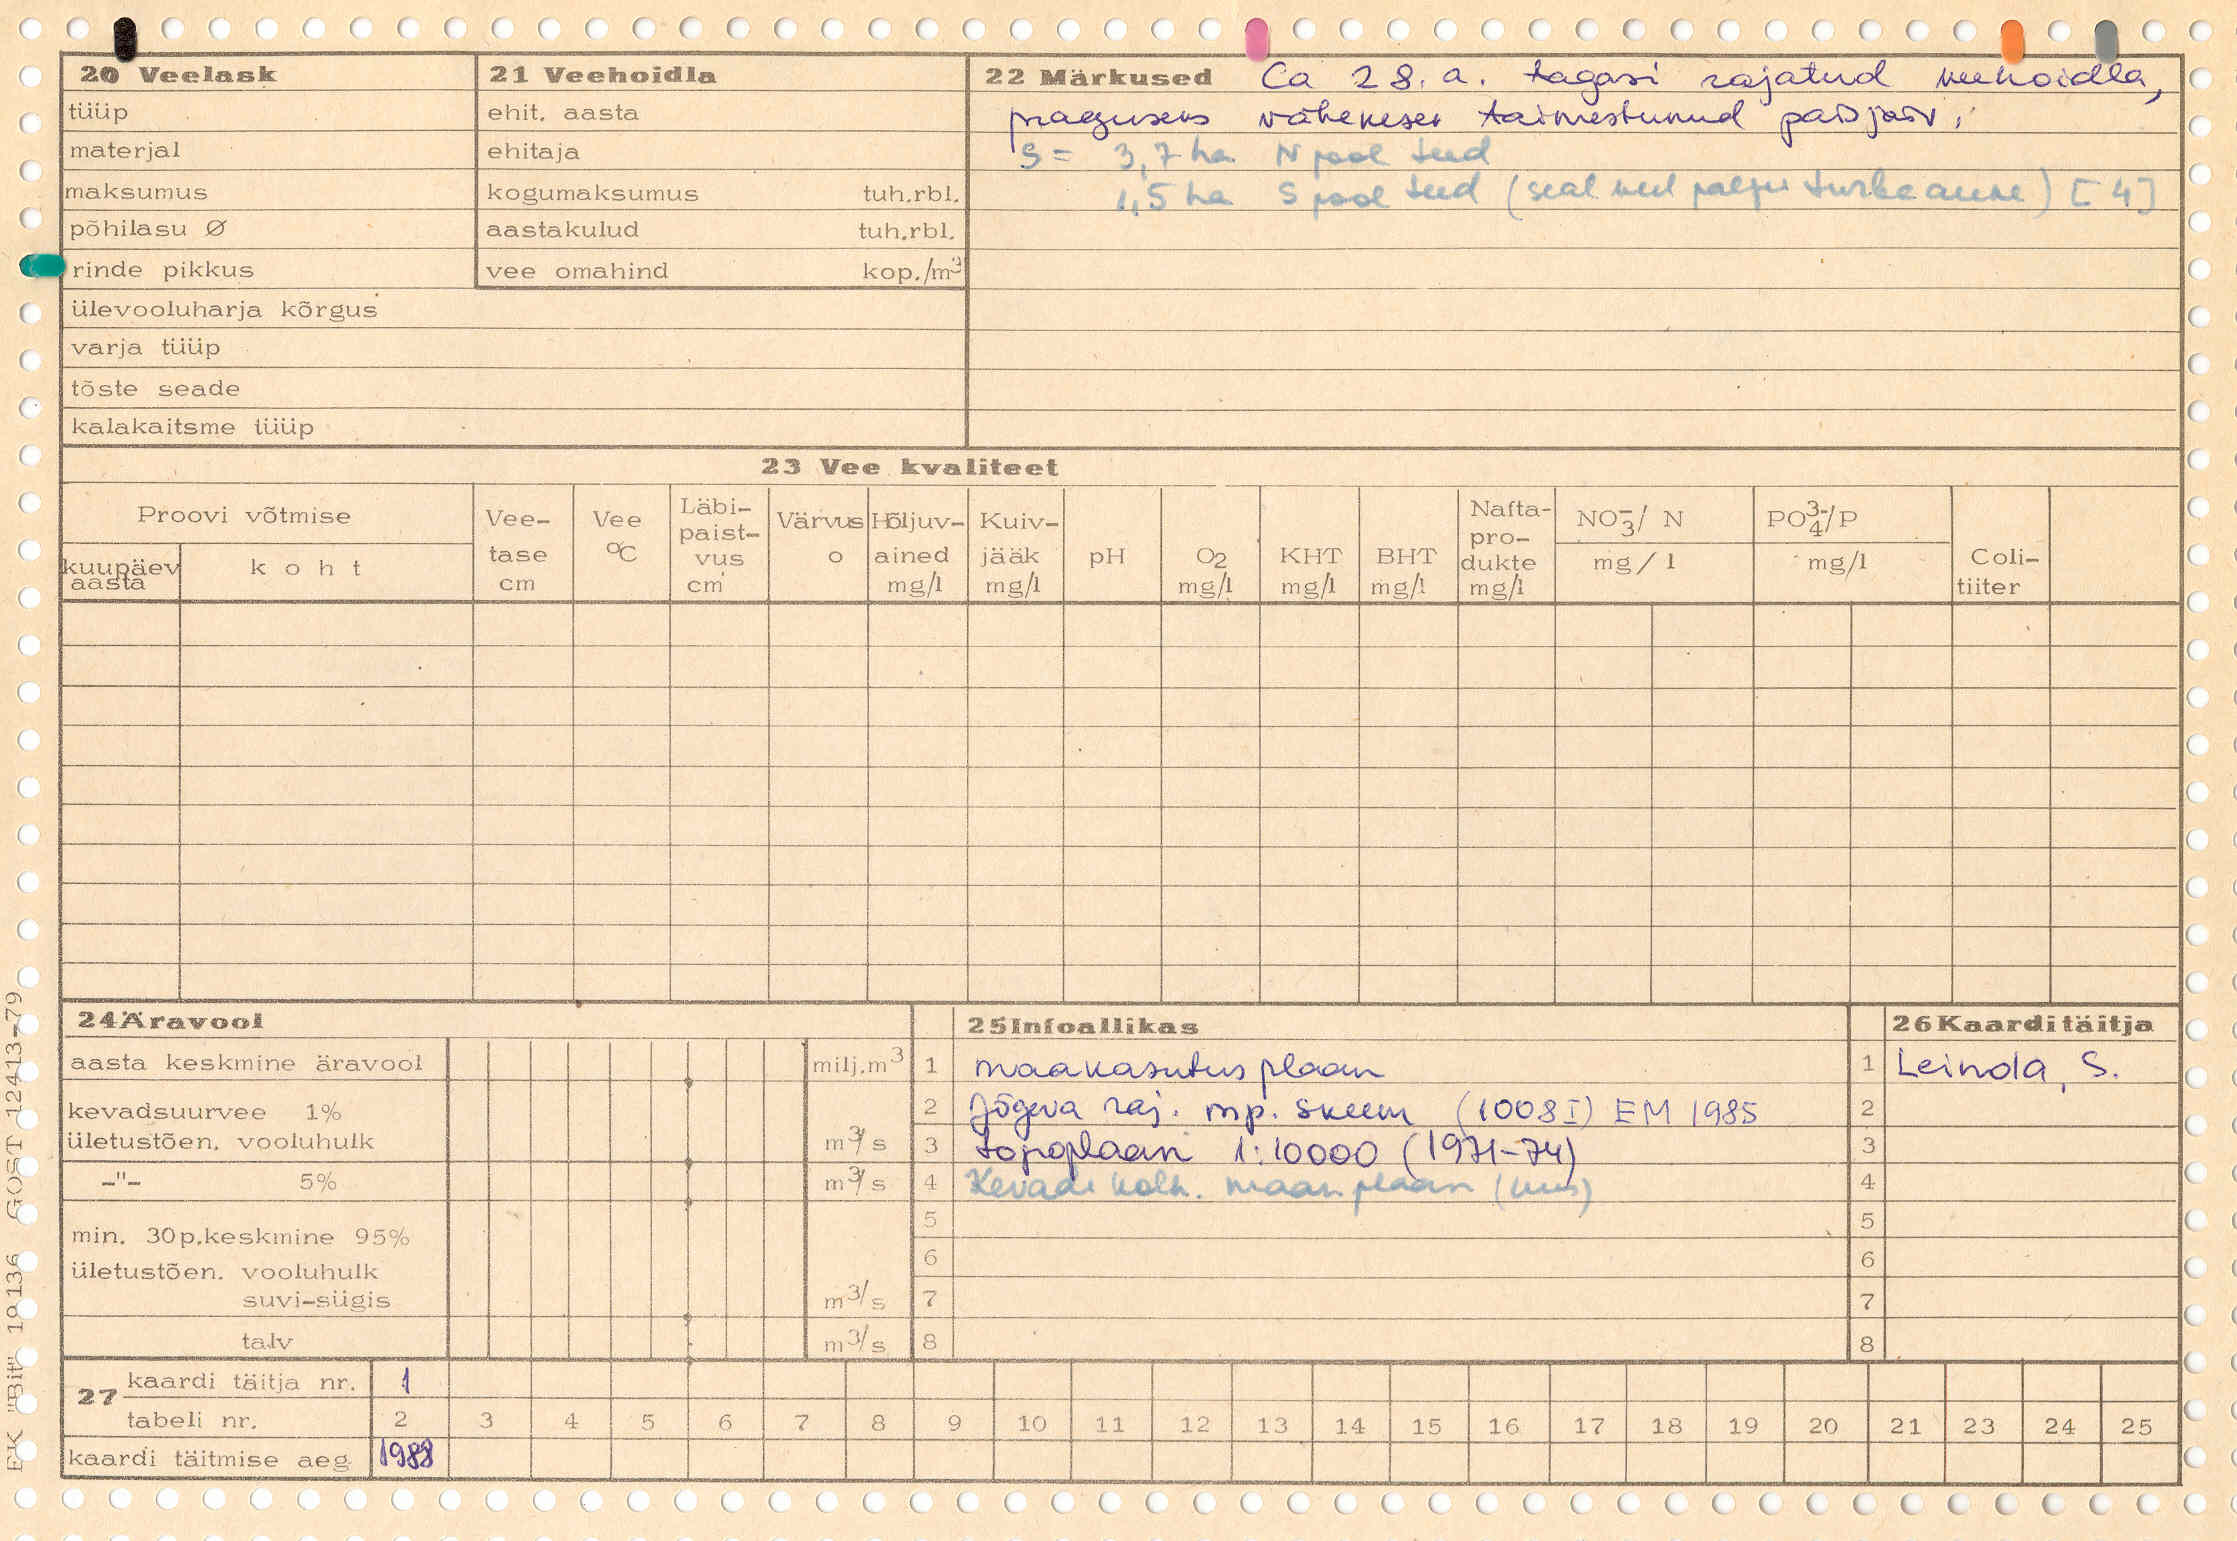 20 Veelask
tüüp
materjal
maksumus
põhilasu Ø
rinde pikkus
ülevooluharja kõrgus
varja tüüp
tõste seade
kalakaitsme tüüp
21 Veehoidla
ehit. aasta
ehitaja
kogumaksumus tuh.rbl.
aastakulud tuh.rbl.
vee omahind kop./m³
22 Märkused Ca 28. a. tagasi rajatud veehoidla,
praeguseks väheneser taimestunud paisjärv.
S = 3,7 ha N pool teed
1,5 ha S pool teed (seal veel palju turbeauke) [4]
23 Vee kvaliteet
Proovi võtmise
kuupäev aasta
koht
Vee-tase cm
Vee °C
Läbi-paist-vus cm
Värvus o
Hõljuv-ained mg/l
Kuiv-jääk mg/l
pH
O₂ mg/l
KHT mg/l
BHT mg/l
Nafta-pro-dukte mg/l
NO₃⁻/ N mg/l
PO₄³⁻/P mg/l
Coli-tiiter
24 Äravool
aasta keskmine äravool milj.m³
kevadsuurvee 1%
ületustõen. vooluhulk m³/s
-"- 5% m³/s
min. 30p.keskmine 95%
ületustõen. vooluhulk
suvi-sügis m³/s
talv m³/s
25 Infoallikas
1 maakasutusplaan
2 Jõgeva raj. mp. skeem (1008 I) EM 1985
3 topoplaan 1:10000 (1971-74)
4 Kevade kolh. maaplaan (uus)
5
6
7
8
26 Kaardi täitja
1 Leinola, S.
2
3
4
5
6
7
8
27 kaardi täitja nr. 1
tabeli nr. 2 3 4 5 6 7 8 9 10 11 12 13 14 15 16 17 18 19 20 21 23 24 25
kaardi täitmise aeg 1988
EK "Bit" 19136 GOST 12413-79